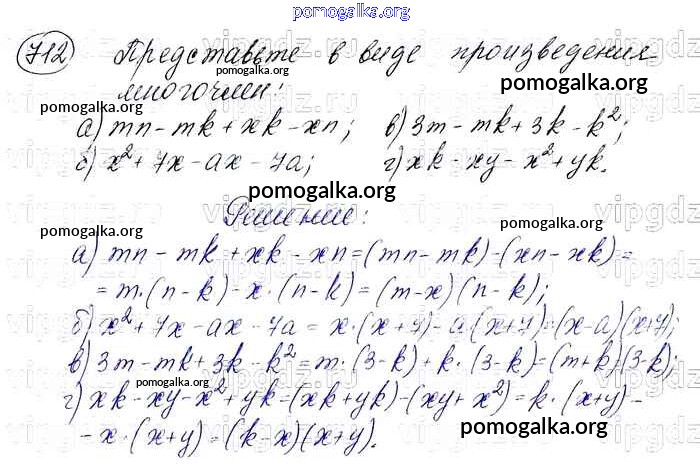 pomogalka.org
712 Представьте в виде произведения
pomogalka.org
pomogalka.org
многочлен:
а) mn - mk + xk - xn; в) 3m - mk + 3k - k²;
б) x² + 7x - ax - 7a; г) xk - xy - x² + yk.
pomogalka.org
Решение:
pomogalka.org
pomogalka.org
а) mn - mk + xk - xn = (mn - mk) - (xn - xk) =
= m·(n - k) - x·(n - k) = (m - x)(n - k);
б) x² + 7x - ax - 7a = x·(x + 7) - a(x + 7) = (x - a)(x + 7);
в) 3m - mk + 3k - k² = m·(3 - k) + k·(3 - k) = (m + k)(3 - k);
pomogalka.org
г) xk - xy - x² + yk = (xk + yk) - (xy + x²) = k·(x + y) -
- x·(x + y) = (k - x)(x + y).
pomogalka.org
pomogalka.org